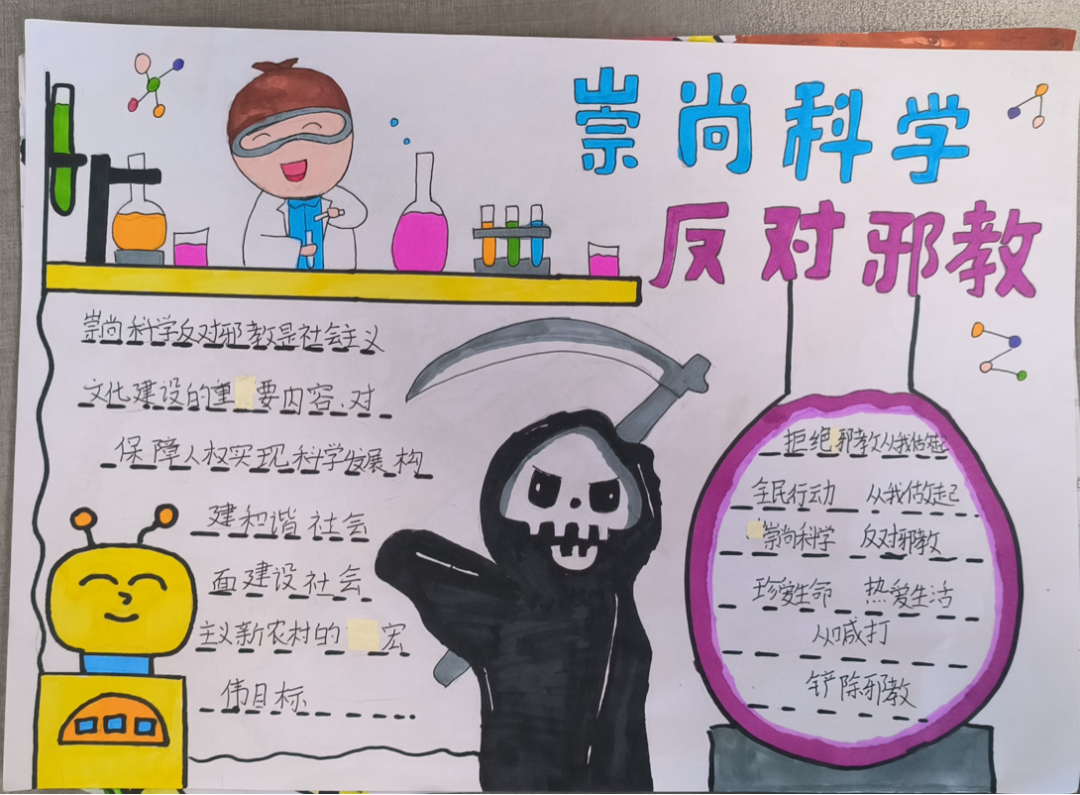 崇尚科学
反对邪教
崇尚科学反对邪教是社会主义
文化建设的重要内容.对
保障人权实现科学发展构
建和谐社会
面建设社会
主义新农村的宏
伟目标
拒绝邪教从我做起
全民行动 从我做起
崇尚科学 反对邪教
珍爱生命 热爱生活
从减打
铲除邪教